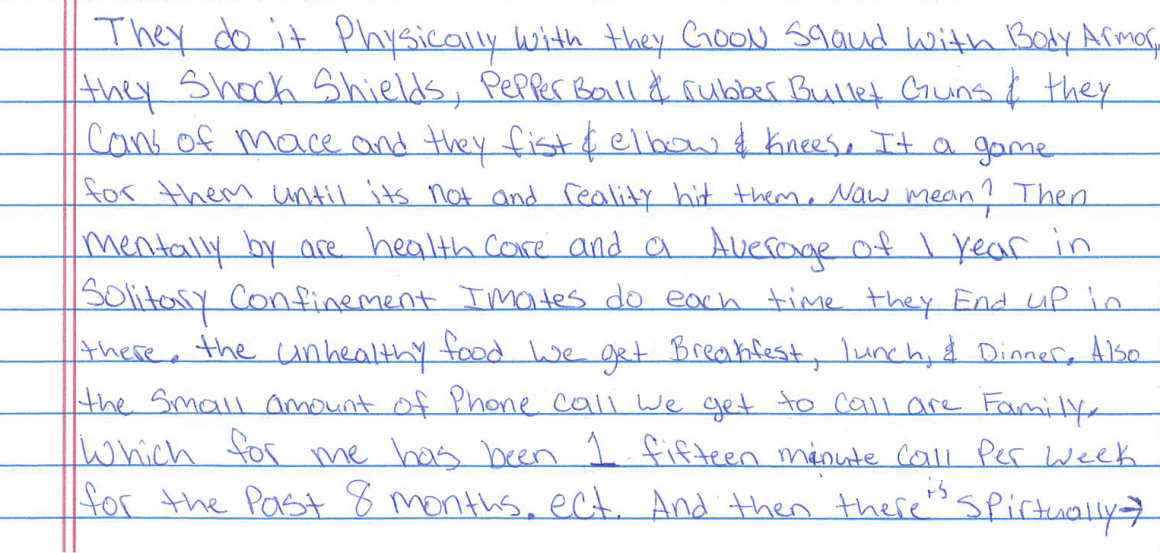 They do it Physically with they Goon Sqaud with Body Armor,
they Shock Shields, Pepper Ball & rubber Bullet Guns & they
Cans of mace and they fist & elbow & knees. It a game
for them until its not and reality hit them. Naw mean? Then
mentally by are health care and a Average of 1 year in
Solitary Confinement Imates do each time they End up in
there. the unhealthy food we get Breakfest, lunch, & Dinner. Also
the small amount of Phone call we get to call are Family.
Which for me has been 1 fifteen minute call Per week
for the Past 8 months. ect. And then there is spirtually →